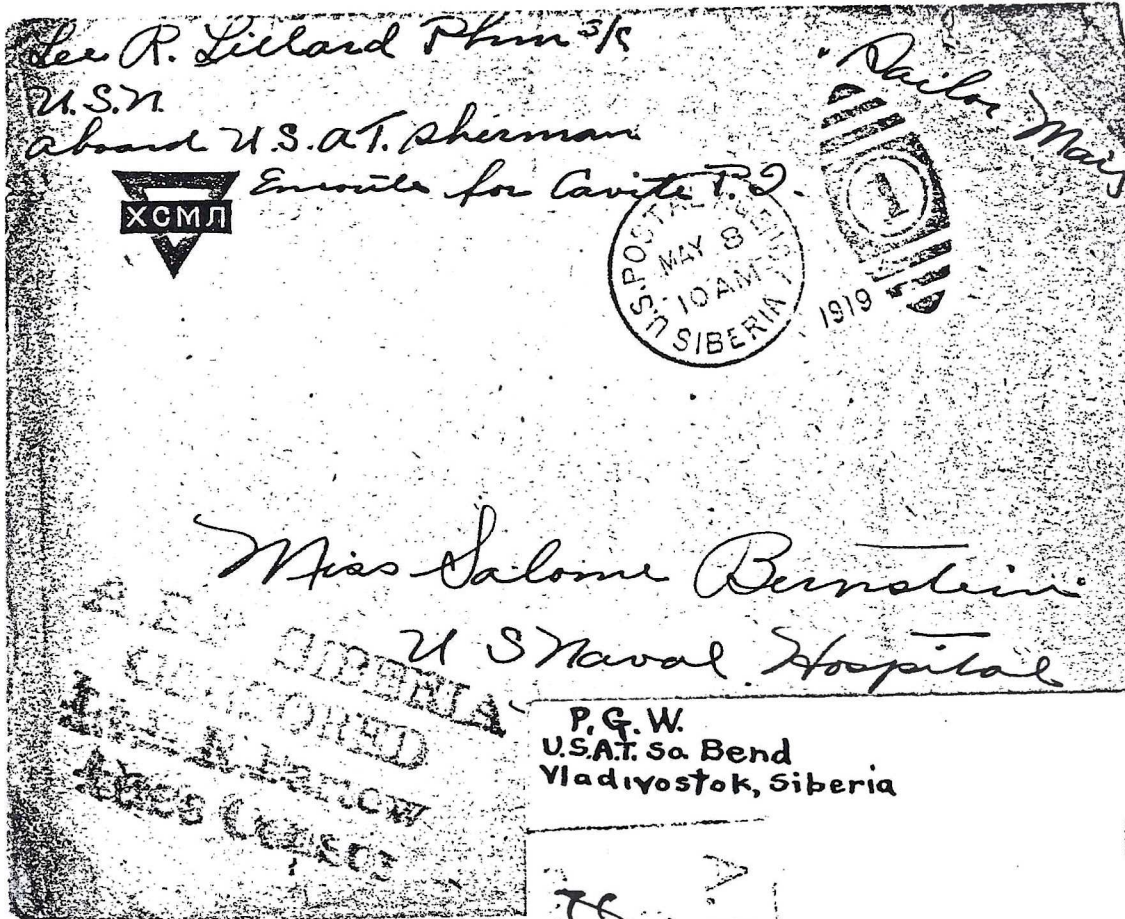 Lee R. Lillard Phm 3/c
U.S.N.
aboard U.S.A.T. Sherman
Enroute for Cavite P.I.
Sailor Mail
ХСМЛ
U.S. POSTAL AGENCY
MAY 8
10 AM
SIBERIA
1919
1
Miss Salome Bernstein
U S Naval Hospital
A.E.F. SIBERIA
CENSORED
Censor
P.G.W.
U.S.A.T. So. Bend
Vladivostok, Siberia